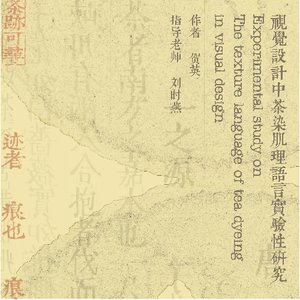 視覺設計中茶染肌理語言實驗性研究
Experimental study on
The texture language of tea dyeing
in visual design
作者 贺英
指导老师 刘时燕
茶跡可尋
迹者 痕也 痕